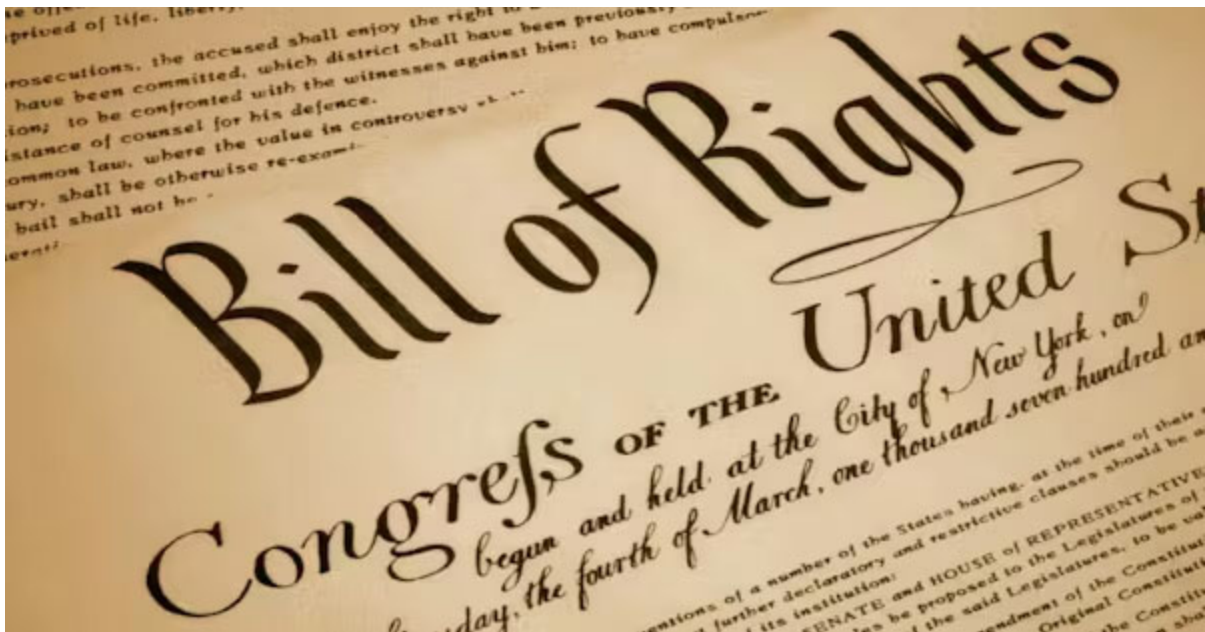 prived of life, liberty,
rosecutions, the accused shall enjoy the right to a
have been committed, which district shall have been previously
ion; to be confronted with the witnesses against him; to have compulsor
istance of counsel for his defence.
ommon law, where the value in controversy
ury, shall be otherwise re-exami
bail shall not be
Bill of Rights
Congreſs OF THE United St
begun and held at the City of New York, on
sday, the fourth of March, one thousand seven hundred an
entions of a number of the States having, at the time of their
further declaratory and restrictive clauses should be a
its institution:
SENATE and HOUSE of REPRESENTATIVE
es be proposed to the Legislatures of
of the said Legislatures, to be val
endment of the Constitut
Original Constituti
the Constit